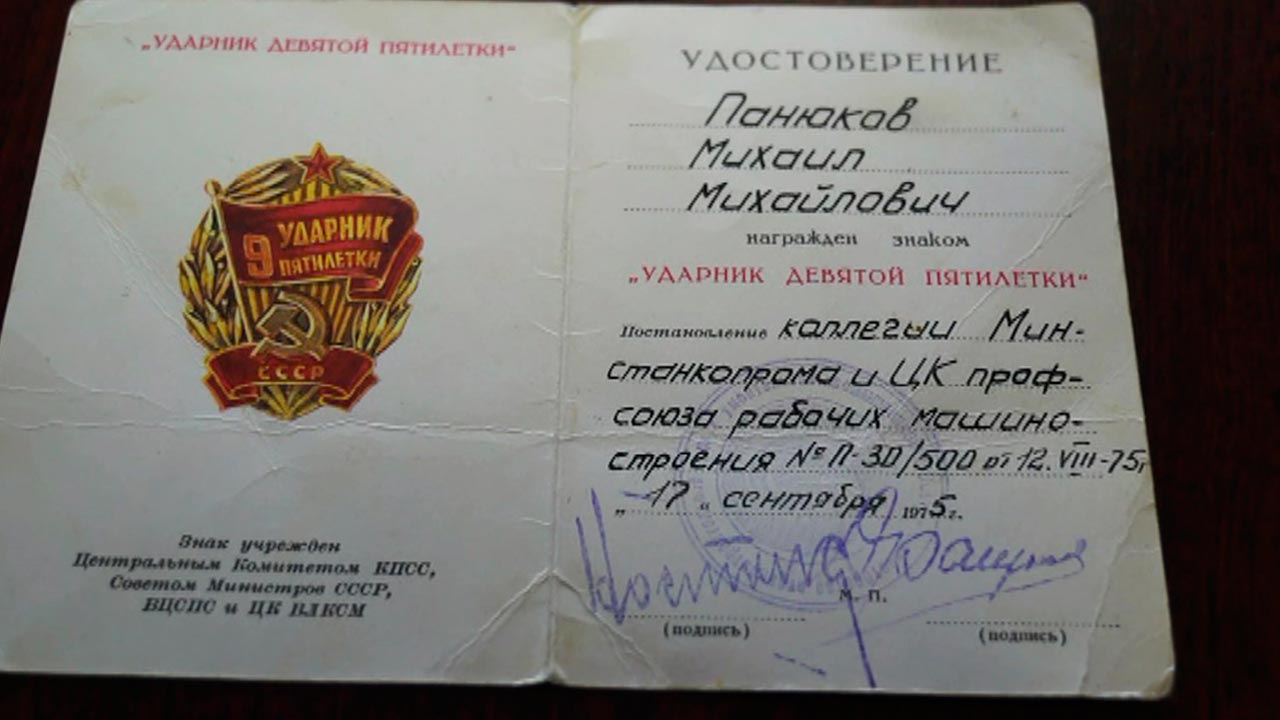 „УДАРНИК ДЕВЯТОЙ ПЯТИЛЕТКИ“
9 УДАРНИК
ПЯТИЛЕТКИ
СССР
Знак учрежден
Центральным Комитетом КПСС,
Советом Министров СССР,
ВЦСПС и ЦК ВЛКСМ
УДОСТОВЕРЕНИЕ
Панюков
Михаил
Михайлович
награжден знаком
„УДАРНИК ДЕВЯТОЙ ПЯТИЛЕТКИ“
Постановление коллегии Мин-
станкопрома и ЦК проф-
союза рабочих машино-
строения № П-30/500 от 12.VIII-75г
„17“ сентября 1975г.
М. П.
(подпись) (подпись)